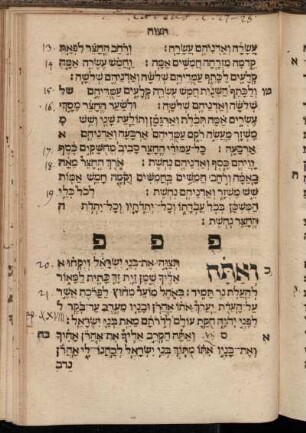 תצוה
עשרה ואדניהם עשרה: ורחב החצר לפאת 13.
קדמה מזרחה חמשים אמה: וחמש עשרה אמה 14.
קלעים לכתף עמדיהם שלשה ואדניהם שלשה:
ולכתף השנית חמש עשרה קלעים עמדיהם של 15
שלשה ואדניהם שלשה: ולשער החצר מסך 16.
עשרים אמה תכלת וארגמן ותולעת שני ושש
משזר מעשה רקם עמדיהם ארבעה ואדניהם
ארבעה: כל עמודי החצר סביב מחשקים כסף 17.
וויהם כסף ואדניהם נחשת: ארך החצר מאה 18.
באמה ורחב חמשים בחמשים וקמה חמש אמות
שש משזר ואדניהם נחשת: לכל כלי 19
המשכן בכל עבדתו וכל יתדתיו וכל יתדת
החצר נחשת:
פ פ פ
ואתה תצוה את בני ישראל ויקחו 20.
אליך שמן זית זך כתית למאור
להעלת נר תמיד: באהל מועד מחוץ לפרכת אשר 21.
על העדת יערך אתו אהרן ובניו מערב עד בקר
לפני יהוה חקת עולם לדרתם מאת בני ישראל:
ס ואתה הקרב אליך את אהרן אחיך כח
ואת בניו אתו מתוך בני ישראל לכהנו לי אהרן
נדב